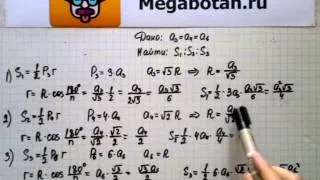 Megabotan.ru
Дано: a₃=a₄=a₆
Найти: S₁:S₂:S₃
1) S₃=½P₃r P₃=3·a₃ a₃=√3 R ⇒ R=a₃/√3
r=R·cos 180°/n = a₃/√3·½ = a₃/2√3 S₁=½·3a₃·a₃√3/6=a₃²√3/4
2) S₄=½P₄r P₄=4·a₄ a₄=√2 R ⇒ R=
r=R·cos 180°/n = a₄/√2·√2/2 = a₄/2 S₂=½·4a₄·a₄/2=
3) S₃=½P₆r P₆=6·a₆ a₆=R
r=R·cos 180°/n S₃=½·6·a₆·